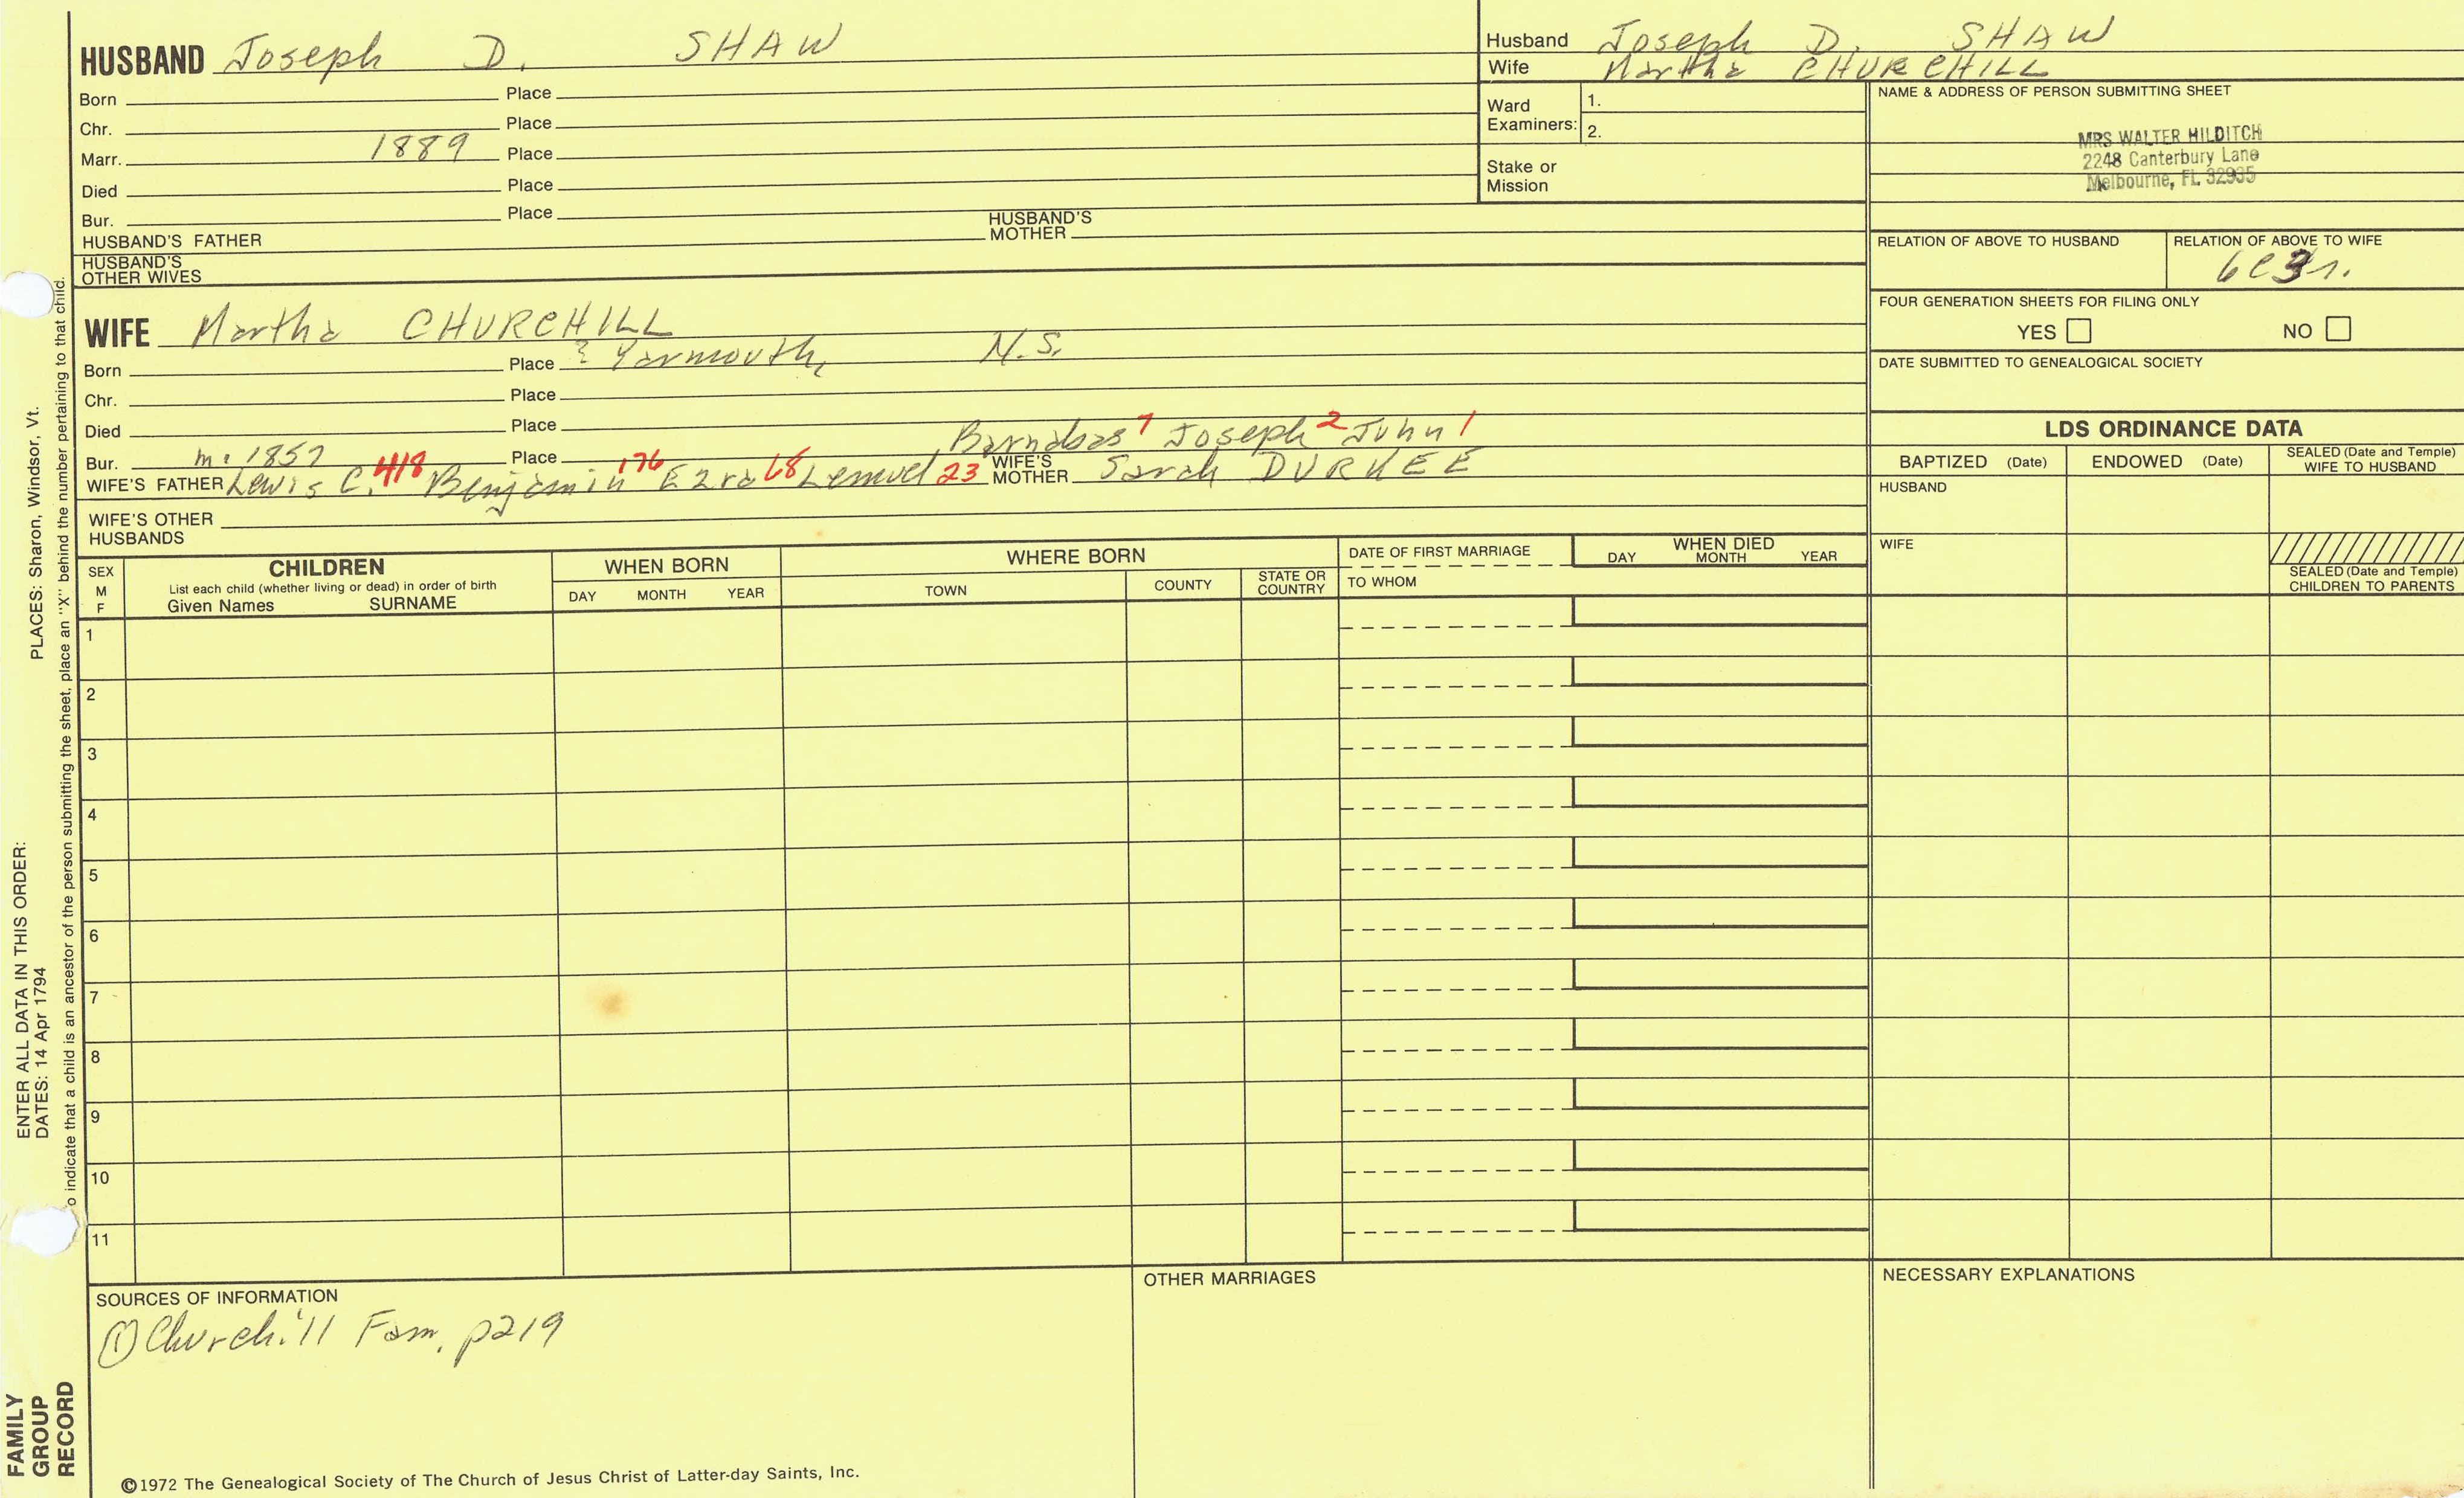 HUSBAND Joseph D. SHAW
Born Place
Chr. Place
Marr. 1889 Place
Died Place
Bur. Place
HUSBAND'S FATHER HUSBAND'S MOTHER
HUSBAND'S OTHER WIVES
WIFE Martha CHURCHILL
Born Place ? Yarmouth, N.S.
Chr. Place
Died Place
Barnabas 7 Joseph 2 John 1
Bur. m. 1857 Place
WIFE'S FATHER Lewis C. 418 Benjamin 176 Ezra 68 Lemuel 23 WIFE'S MOTHER Sarah DURKEE
WIFE'S OTHER HUSBANDS
Husband Joseph D. SHAW
Wife Martha CHURCHILL
Ward Examiners: 1.
2.
Stake or Mission
NAME & ADDRESS OF PERSON SUBMITTING SHEET
MRS WALTER HILDITCH
2248 Canterbury Lane
Melbourne, FL 32935
RELATION OF ABOVE TO HUSBAND RELATION OF ABOVE TO WIFE
6C3r.
FOUR GENERATION SHEETS FOR FILING ONLY
YES NO
DATE SUBMITTED TO GENEALOGICAL SOCIETY
LDS ORDINANCE DATA
BAPTIZED (Date) ENDOWED (Date) SEALED (Date and Temple) WIFE TO HUSBAND
HUSBAND
WIFE
SEALED (Date and Temple) CHILDREN TO PARENTS
SEX M F
CHILDREN
List each child (whether living or dead) in order of birth
Given Names SURNAME
WHEN BORN
DAY MONTH YEAR
WHERE BORN
TOWN COUNTY STATE OR COUNTRY
DATE OF FIRST MARRIAGE
TO WHOM
WHEN DIED
DAY MONTH YEAR
1
2
3
4
5
6
7
8
9
10
11
SOURCES OF INFORMATION
(1) Churchill Fam. p219
OTHER MARRIAGES
NECESSARY EXPLANATIONS
©1972 The Genealogical Society of The Church of Jesus Christ of Latter-day Saints, Inc.
FAMILY GROUP RECORD
ENTER ALL DATA IN THIS ORDER:
DATES: 14 Apr 1794 PLACES: Sharon, Windsor, Vt.
o indicate that a child is an ancestor of the person submitting the sheet, place an "X" behind the number pertaining to that child.